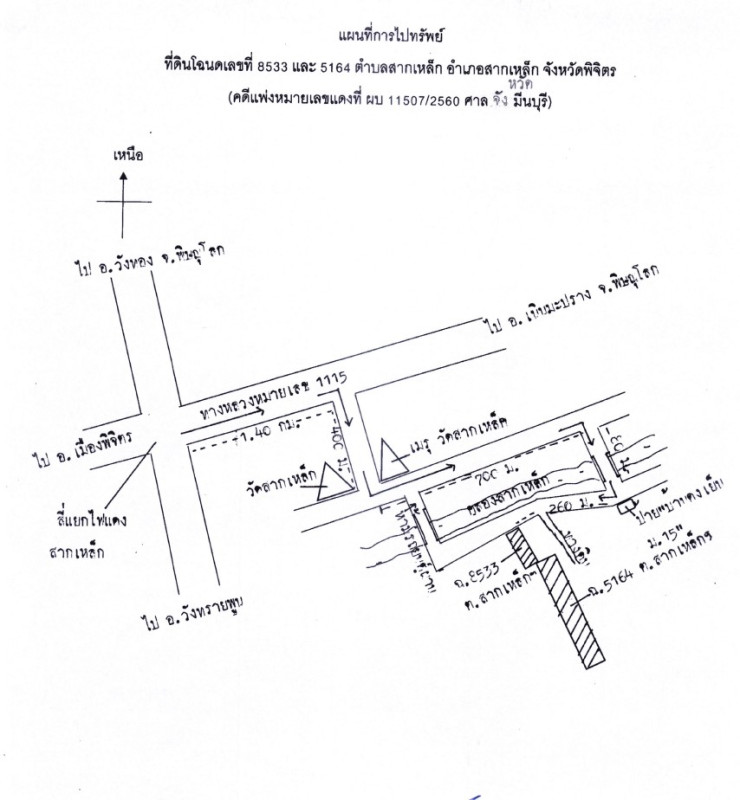 แผนที่การไปทรัพย์
ที่ดินโฉนดเลขที่ 8533 และ 5164 ตำบลสากเหล็ก อำเภอสากเหล็ก จังหวัดพิจิตร
(คดีแพ่งหมายเลขแดงที่ ผบ 11507/2560 ศาล จังหวัด มีนบุรี)
เหนือ
ไป อ.วังทอง จ.พิษณุโลก
ไป อ.เนินมะปราง จ.พิษณุโลก
ทางหลวงหมายเลข 1115
1.40 กม.
400 ม.
ไป อ.เมืองพิจิตร
วัดสากเหล็ก
เมรุ วัดสากเหล็ก
700 ม.
คลองสากเหล็ก
260 ม.
สี่แยกไฟแดง
สากเหล็ก
ป้าย"บ้านดงเย็น
ม.15"
ต.สากเหล็กฯ
ทางดิน
ฉ.8533
ต.สากเหล็กฯ
ฉ.5164
ไป อ.วังทรายพูน